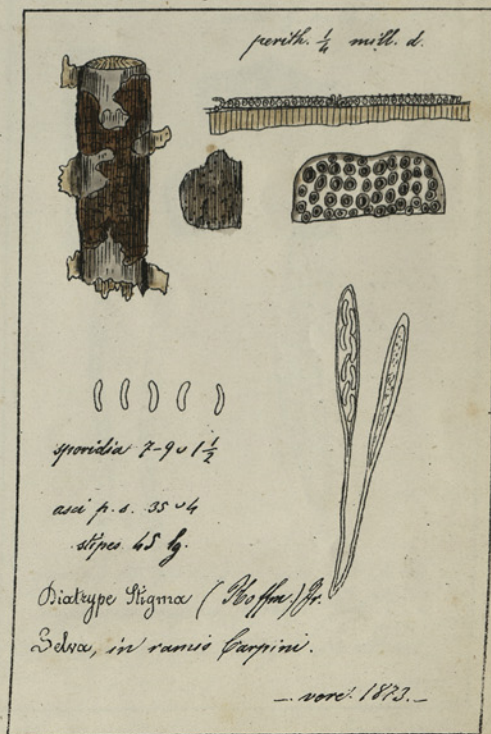 perith. ¼ mill. d.
sporidia 7-9 ⌣ 1½
asci p. s. 35 ⌣ 4
stipes 45 lg.
Diatrype Stigma (Hoffm.) Fr.
Selva, in ramis Carpini.
— vere. 1873. —